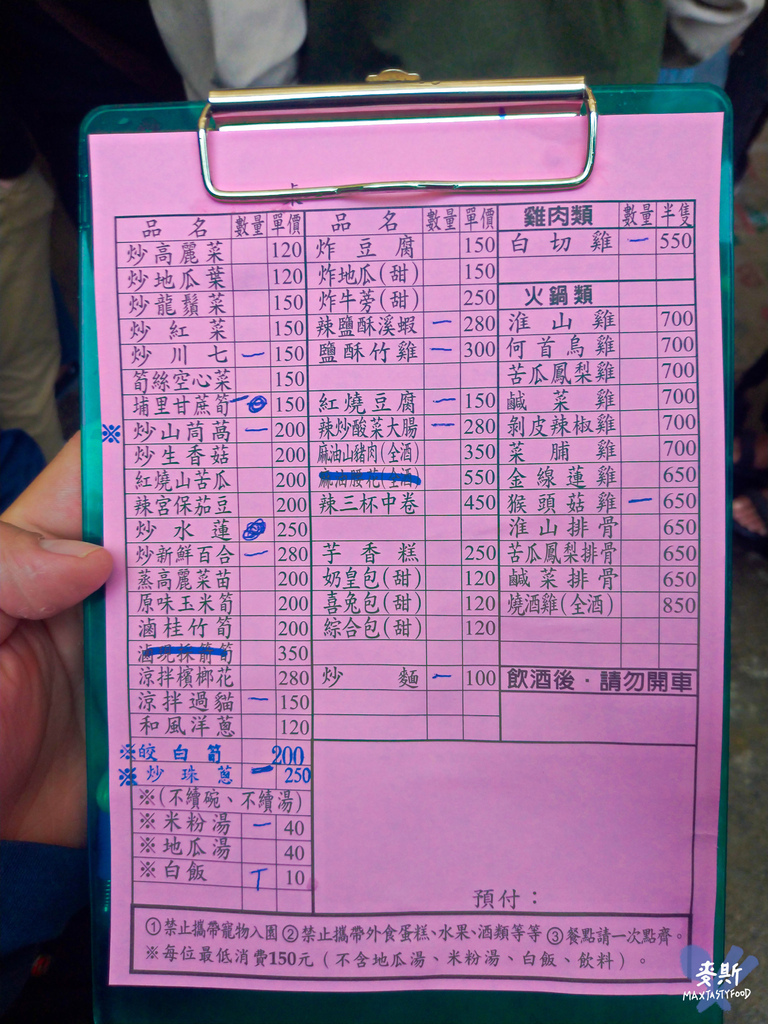 桌
品名 數量 單價
炒高麗菜 120
炒地瓜葉 120
炒龍鬚菜 150
炒紅菜 150
炒川七 一 150
筍絲空心菜 150
埔里甘蔗筍 150
※炒山茼萵 一 200
炒生香菇 200
紅燒山苦瓜 200
辣宮保茄豆 200
炒水蓮 250
炒新鮮百合 一 280
蒸高麗菜苗 200
原味玉米筍 200
滷桂竹筍 200
滷現採箭筍 350
涼拌檳榔花 280
涼拌過貓 一 150
和風洋蔥 120
※皎白筍 200
※炒珠蔥 一 250
※(不續碗、不續湯)
※米粉湯 一 40
※地瓜湯 40
※白飯 T 10
品名 數量 單價
炸豆腐 150
炸地瓜(甜) 150
炸牛蒡(甜) 250
辣鹽酥溪蝦 一 280
鹽酥竹雞 一 300
紅燒豆腐 一 150
辣炒酸菜大腸 一 280
麻油山豬肉(全酒) 350
麻油腰花(全酒) 550
辣三杯中卷 450
芋香糕 250
奶皇包(甜) 120
喜兔包(甜) 120
綜合包(甜) 120
炒麵 一 100
雞肉類 數量 半隻
白切雞 一 550
火鍋類
淮山雞 700
何首烏雞 700
苦瓜鳳梨雞 700
鹹菜雞 700
剝皮辣椒雞 700
菜脯雞 700
金線蓮雞 650
猴頭菇雞 一 650
淮山排骨 650
苦瓜鳳梨排骨 650
鹹菜排骨 650
燒酒雞(全酒) 850
飲酒後·請勿開車
預付：
①禁止攜帶寵物入園②禁止攜帶外食蛋糕、水果、酒類等等③餐點請一次點齊。
※每位最低消費150元（不含地瓜湯、米粉湯、白飯、飲料）。
麥斯
MAXTASTYFOOD